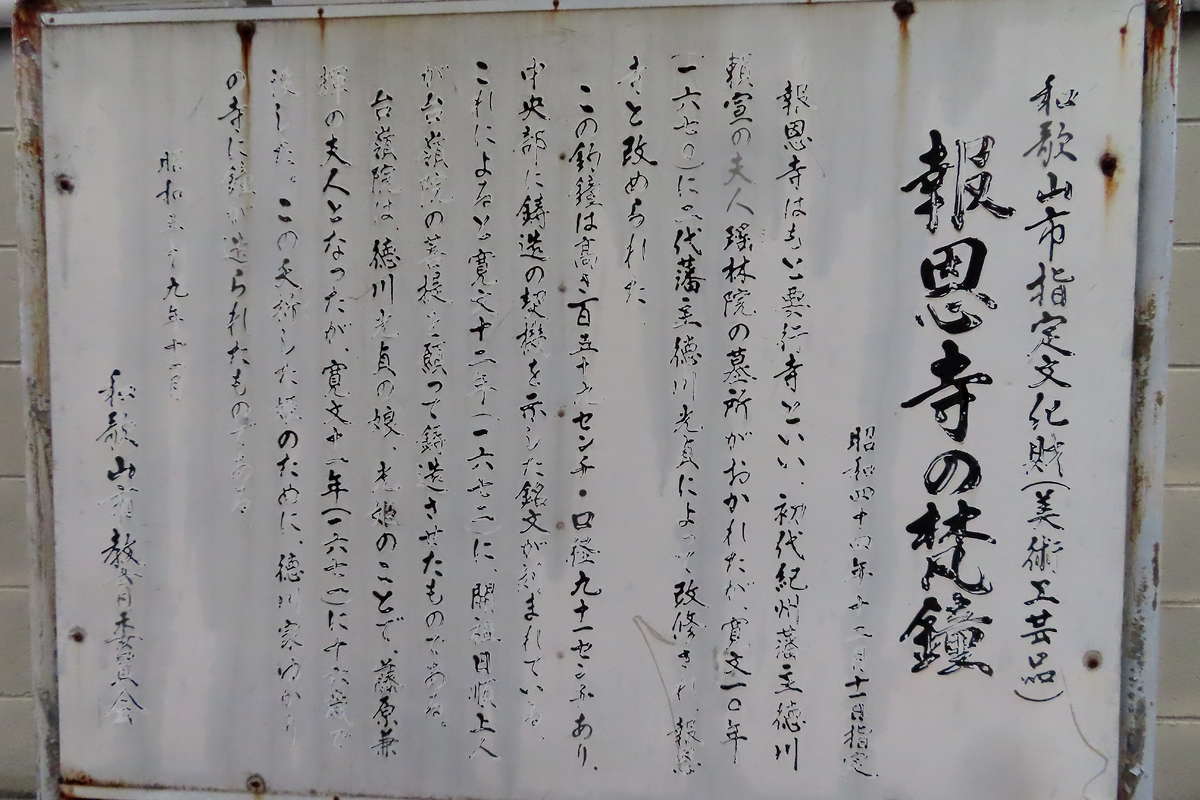 和歌山市指定文化財(美術工芸品)
報恩寺の梵鐘
昭和四十四年十二月十一日指定
報恩寺はもと要行寺といい、初代紀州藩主徳川
頼宣の夫人瑤林院の墓所がおかれたが、寛文一〇年
(一六七〇)に二代藩主徳川光貞によって改修され、報恩
寺と改められた。
この釣鐘は高さ百五十 センチ・口径九十一センチあり、
中央部に鋳造の契機を示した銘文がきざまれている。
これによると寛文十二年(一六七二)に、開祖日順上人
が台嶺院の菩提を願って鋳造させたものである。
台嶺院は、徳川光貞の娘、光姫のことで、藤原兼
輝の夫人となったが、寛文十一年(一六七一)に十六歳で
没した。この夭折した姫のために、徳川家ゆかり
の寺に鐘が造られたものである。
昭和五十九年十一月
和歌山市教育委員会